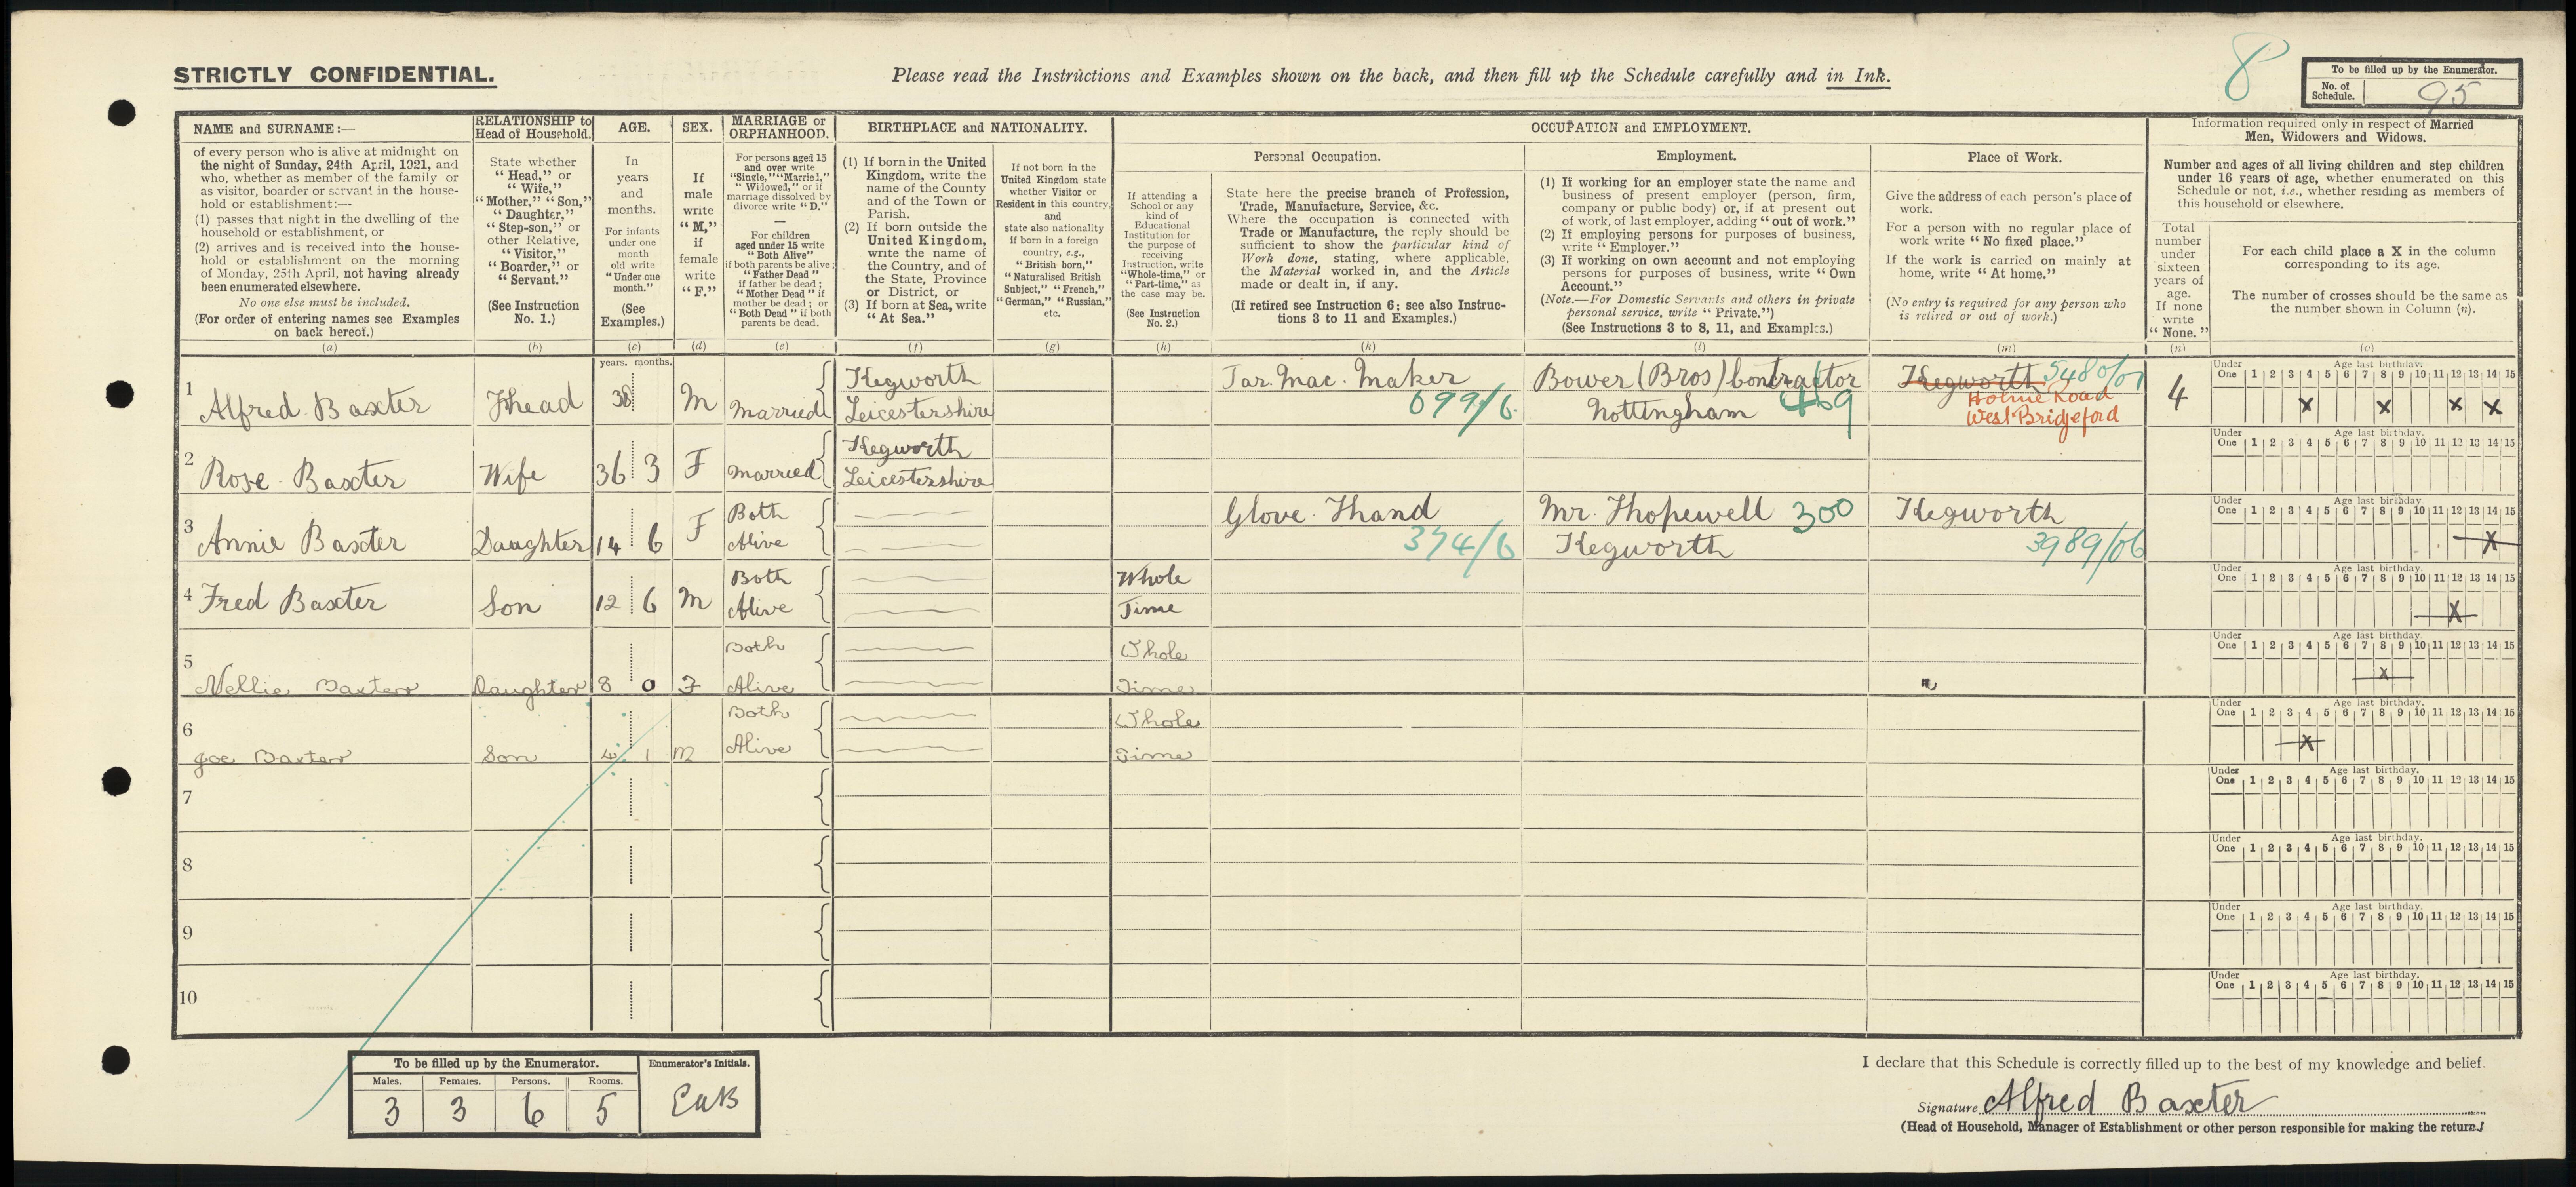 STRICTLY CONFIDENTIAL.
Please read the Instructions and Examples shown on the back, and then fill up the Schedule carefully and in Ink.
8
To be filled up by the Enumerator.
No. of Schedule. 95
NAME and SURNAME:—
of every person who is alive at midnight on
the night of Sunday, 24th April, 1921, and
who, whether as member of the family or
as visitor, boarder or servant in the house-
hold or establishment:—
(1) passes that night in the dwelling of the
household or establishment, or
(2) arrives and is received into the house-
hold or establishment on the morning
of Monday, 25th April, not having already
been enumerated elsewhere.
No one else must be included.
(For order of entering names see Examples
on back hereof.)
(a)
RELATIONSHIP to
Head of Household.
State whether
"Head," or
"Wife,"
"Mother," "Son,"
"Daughter,"
"Step-son," or
other Relative,
"Visitor,"
"Boarder," or
"Servant."
(See Instruction
No. 1.)
(b)
AGE.
In
years
and
months.
For infants
under one
month
old write
"Under one
month."
(See
Examples.)
(c)
SEX.
If
male
write
"M,"
if
female
write
"F."
(d)
MARRIAGE or
ORPHANHOOD.
For persons aged 15
and over write
"Single," "Married,"
"Widowed," or if
marriage dissolved by
divorce write "D."
—
For children
aged under 15 write
"Both Alive"
if both parents be alive;
"Father Dead"
if father be dead;
"Mother Dead" if
mother be dead; or
"Both Dead" if both
parents be dead.
(e)
BIRTHPLACE and NATIONALITY.
(1) If born in the United
Kingdom, write the
name of the County
and of the Town or
Parish.
(2) If born outside the
United Kingdom,
write the name of
the Country, and of
the State, Province
or District, or
(3) If born at Sea, write
"At Sea."
(f)
If not born in the
United Kingdom state
whether Visitor or
Resident in this country,
and
state also nationality
if born in a foreign
country, e.g.,
"British born,"
"Naturalised British
Subject," "French,"
"German," "Russian,"
etc.
(g)
OCCUPATION and EMPLOYMENT.
If attending a
School or any
kind of
Educational
Institution for
the purpose of
receiving
Instruction, write
"Whole-time," or
"Part-time," as
the case may be.
(See Instruction
No. 2.)
(h)
Personal Occupation.
State here the precise branch of Profession,
Trade, Manufacture, Service, &c.
Where the occupation is connected with
Trade or Manufacture, the reply should be
sufficient to show the particular kind of
Work done, stating, where applicable,
the Material worked in, and the Article
made or dealt in, if any.
(If retired see Instruction 6; see also Instruc-
tions 3 to 11 and Examples.)
(k)
Employment.
(1) If working for an employer state the name and
business of present employer (person, firm,
company or public body) or, if at present out
of work, of last employer, adding "out of work."
(2) If employing persons for purposes of business,
write "Employer."
(3) If working on own account and not employing
persons for purposes of business, write "Own
Account."
(Note.—For Domestic Servants and others in private
personal service, write "Private.")
(See Instructions 3 to 8, 11, and Examples.)
(l)
Place of Work.
Give the address of each person's place of
work.
For a person with no regular place of
work write "No fixed place."
If the work is carried on mainly at
home, write "At home."
(No entry is required for any person who
is retired or out of work.)
(m)
Information required only in respect of Married
Men, Widowers and Widows.
Number and ages of all living children and step children
under 16 years of age, whether enumerated on this
Schedule or not, i.e., whether residing as members of
this household or elsewhere.
Total
number
under
sixteen
years of
age.
If none
write
"None."
(n)
For each child place a X in the column
corresponding to its age.
The number of crosses should be the same as
the number shown in Column (n).
(o)
years. months.
1 Alfred Baxter Head 38 M Married Kegworth Leicestershire Tar. Mac. Maker 699/6 Bower (Bros) Contractor Nottingham 469 Kegworth 5480/01 Holme Road West Bridgeford 4 X X X X
Under One 1 2 3 4 5 6 7 8 9 10 11 12 13 14 15 Age last birthday.
2 Rose Baxter Wife 36 3 F Married Kegworth Leicestershire
Under One 1 2 3 4 5 6 7 8 9 10 11 12 13 14 15 Age last birthday.
3 Annie Baxter Daughter 14 6 F Both Alive Glove Hand 374/6 Mr. Hopewell 300 Kegworth Kegworth 3989/06 X
Under One 1 2 3 4 5 6 7 8 9 10 11 12 13 14 15 Age last birthday
4 Fred Baxter Son 12 6 M Both Alive Whole Time X
Under One 1 2 3 4 5 6 7 8 9 10 11 12 13 14 15 Age last birthday.
5 Nellie Baxter Daughter 8 0 F Both Alive Whole Time X
Under One 1 2 3 4 5 6 7 8 9 10 11 12 13 14 15 Age last birthday.
6 Joe Baxter Son 4 1 M Both Alive Whole Time X
Under One 1 2 3 4 5 6 7 8 9 10 11 12 13 14 15 Age last birthday.
7
Under One 1 2 3 4 5 6 7 8 9 10 11 12 13 14 15 Age last birthday.
8
Under One 1 2 3 4 5 6 7 8 9 10 11 12 13 14 15 Age last birthday.
9
Under One 1 2 3 4 5 6 7 8 9 10 11 12 13 14 15 Age last birthday.
10
Under One 1 2 3 4 5 6 7 8 9 10 11 12 13 14 15 Age last birthday.
To be filled up by the Enumerator.
Males. Females. Persons. Rooms.
3 3 6 5
Enumerator's Initials.
EAB
I declare that this Schedule is correctly filled up to the best of my knowledge and belief.
Signature Alfred Baxter
(Head of Household, Manager of Establishment or other person responsible for making the return.)